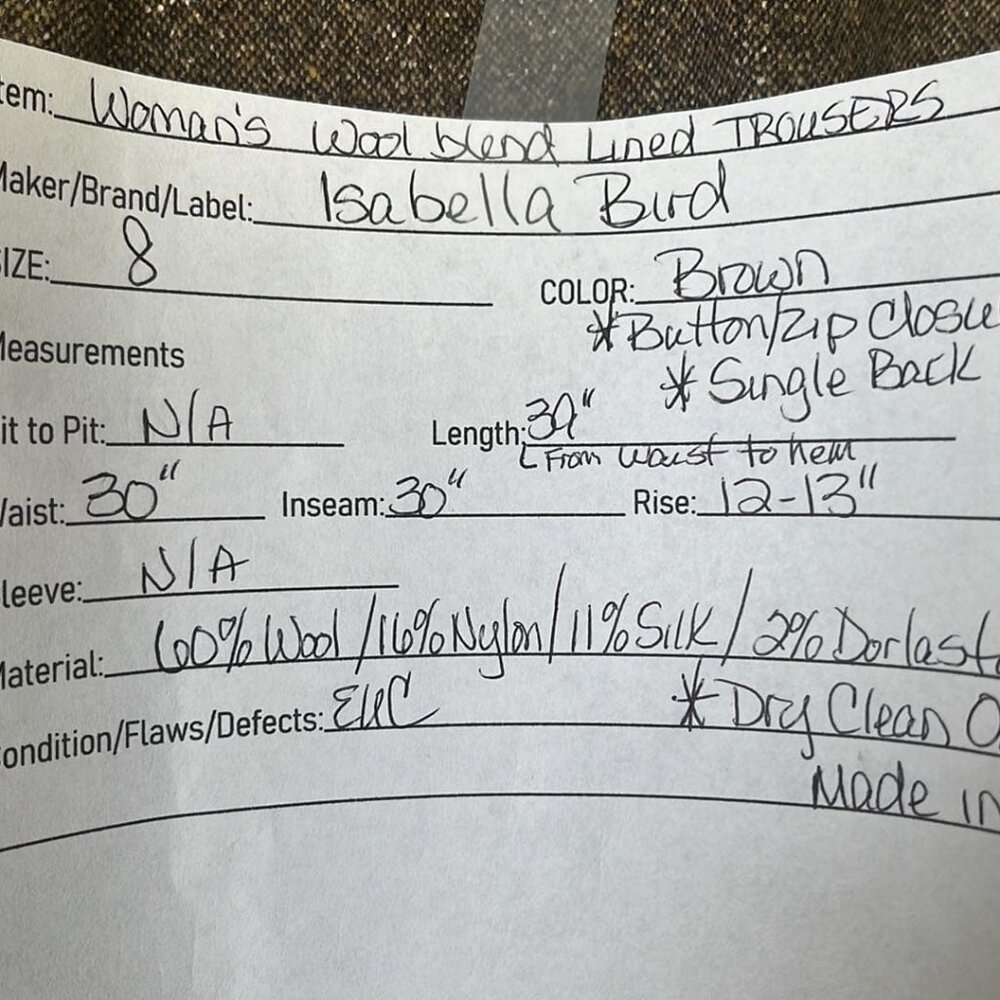 tem: Woman's Wool blend Lined TROUSERS
Maker/Brand/Label: Isabella Bird
SIZE: 8
COLOR: Brown
*Button/Zip Closu
Measurements
* Single Back
it to Pit: N/A
Length: 39"
From waist to hem
Waist: 30" Inseam: 30" Rise: 12-13"
leeve: N/A
Material: 60% Wool/16% Nylon/11% Silk/2% Dorlast
ondition/Flaws/Defects: EUC
* Dry Clean O
Made in